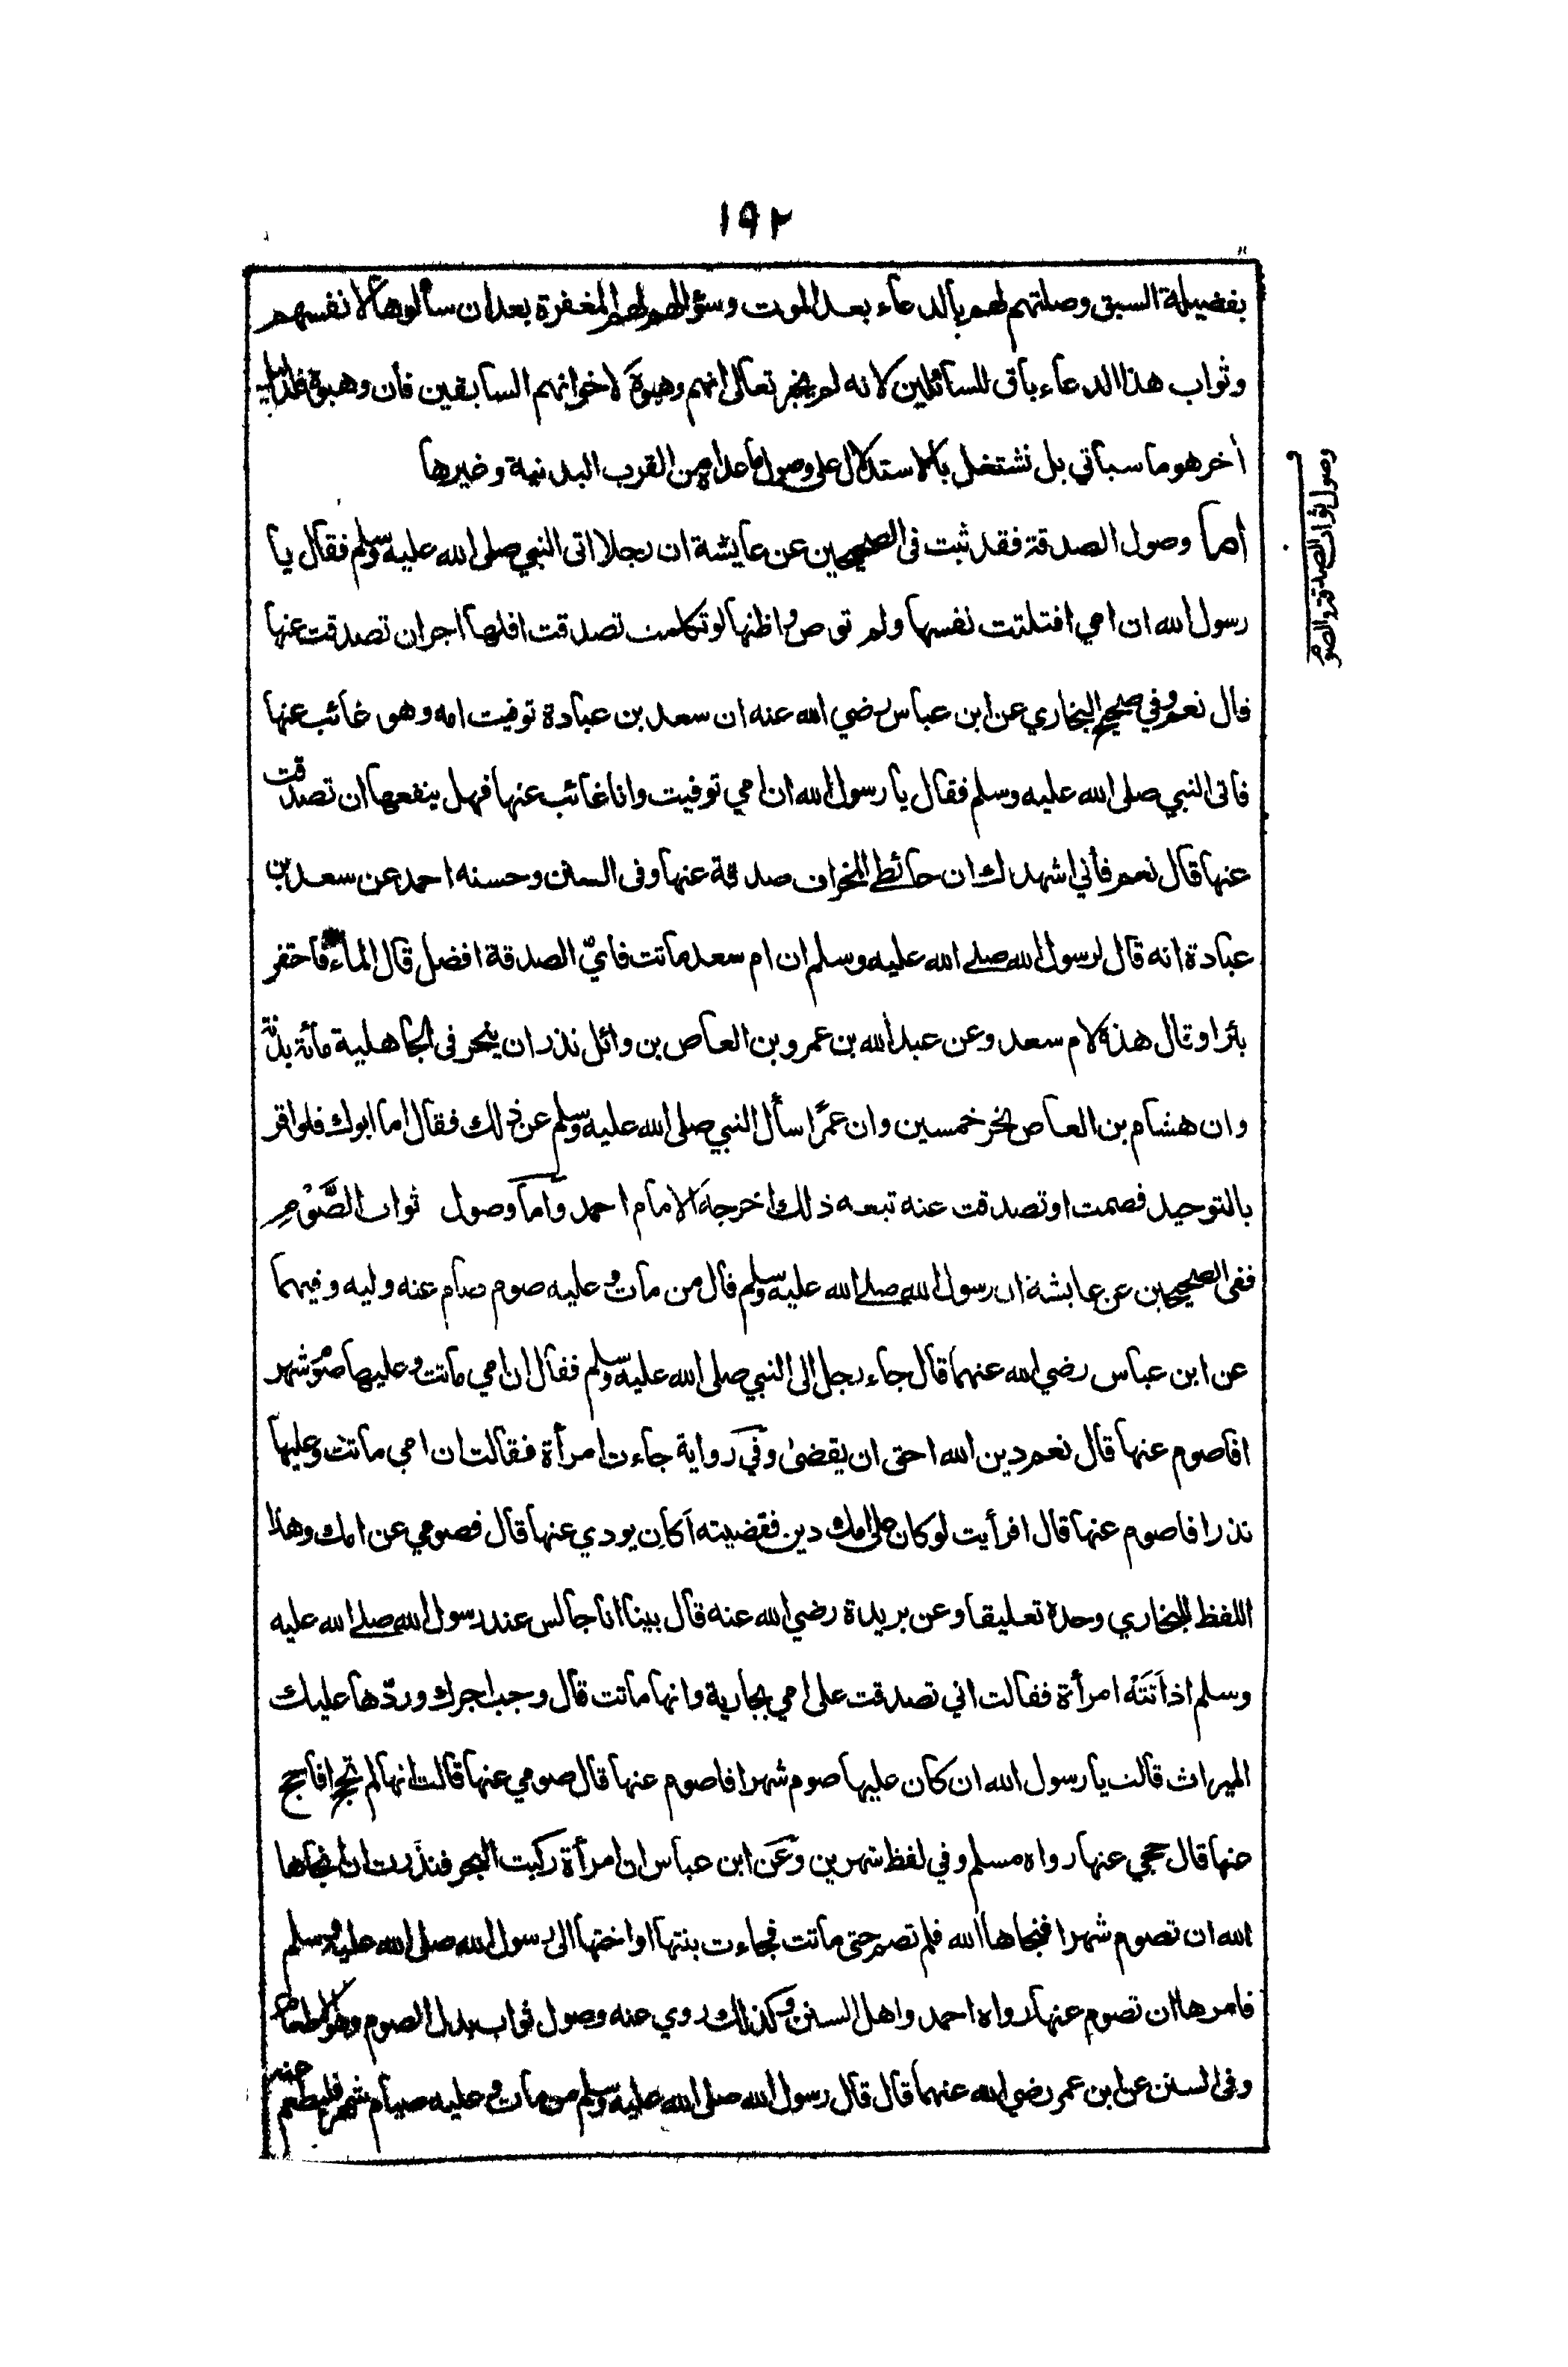 ١٩٢
بفضيلة السبق وصلتهم لهم بالدعاء بعد الموت وسؤالهم لهم المغفرة بعد ان سألوها لانفسهم
وثواب هذا الدعاء باق للسائلين لانه لم يخبر تعالى انهم وهبوه لاخوانهم السابقين فان وهبوه فذا
أخر هو ما سيأتي بل نشتغل بالاستدلال على وصول ما عداه من القرب البدنية وغيرها
أما وصول الصدقة فقد ثبت فى الصحيحين عن عايشة ان رجلا اتى النبي صلى الله عليه وسلم فقال يا
رسول الله ان امي افتلتت نفسها ولم توص واظنها لو تكلمت تصدقت افلها اجر ان تصدقت عنها
قال نعم وفي صحيح البخاري عن ابن عباس رضي الله عنه ان سعد بن عبادة توفيت امه وهو غائب عنها
فاتى النبي صلى الله عليه وسلم فقال يا رسول الله ان امي توفيت وانا غائب عنها فهل ينفعها ان تصدقت
عنها قال نعم فأني اشهدك ان حائطي المخراف صدقة عنها وفى السنن وحسنه احمد عن سعد بن
عبادة انه قال لرسول الله صلے الله عليه وسلم ان ام سعد ماتت فايّ الصدقة افضل قال الماء فاحتفر
بئرا وقال هذه لام سعد وعن عبد الله بن عمرو بن العاص بن وائل نذر ان ينحر فى الجاهلية مائة بدنة
وان هشام بن العاص نحر خمسين وان عمرًا سأل النبي صلى الله عليه وسلم عن ذلك فقال اما ابوك فلو اقر
بالتوحيد فصمت او تصدقت عنه تبعه ذلك اخرجه الامام احمد وأما وصول ثواب الصَّوْمِ
ففى الصحيحين عن عايشة ان رسول الله صلے الله عليه وسلم قال من مات وعليه صوم صام عنه وليه وفيهما
عن ابن عباس رضي الله عنهما قال جاء رجل الى النبي صلى الله عليه وسلم فقال ان امي ماتت وعليها صوم شهر
افاصوم عنها قال نعم دين الله احق ان يقضى وفي رواية جاءت امرأة فقالت ان امي ماتت وعليها
نذر افاصوم عنها قال افرأيت لو كان على امك دين فقضيته أكان يودي عنها قال فصومي عن امك وهذا
اللفظ للبخاري وحده تعليقا وعن بريدة رضي الله عنه قال بينا انا جالس عند رسول الله صلے الله عليه
وسلم اذ اَتَتْه امرأة فقالت اني تصدقت على امي بجارية وانها ماتت قال وجب اجرك وردّها عليك
الميراث قالت يا رسول الله ان كان عليها صوم شهر افاصوم عنها قال صومي عنها قالت انها لم تحج افاحج
عنها قال حجي عنها رواه مسلم وفي لفظ شهرين وعن ابن عباس ان امرأة ركبت البحر فنذرت ان نجاها
الله ان تصوم شهرا فنجاها الله فلم تصم حتى ماتت فجاءت بنتها او اختها الى رسول الله صلى الله عليه وسلم
فامرها ان تصوم عنها رواه احمد واهل السنن وكذلك روي عنه وصول ثواب بدل الصوم وهو الاطعام
وفى السنن عن ابن عمر رضي الله عنهما قال قال رسول الله صلى الله عليه وسلم من مات وعليه صيام شهر فليطعم عنه
وصول ثواب الصدقة والصوم